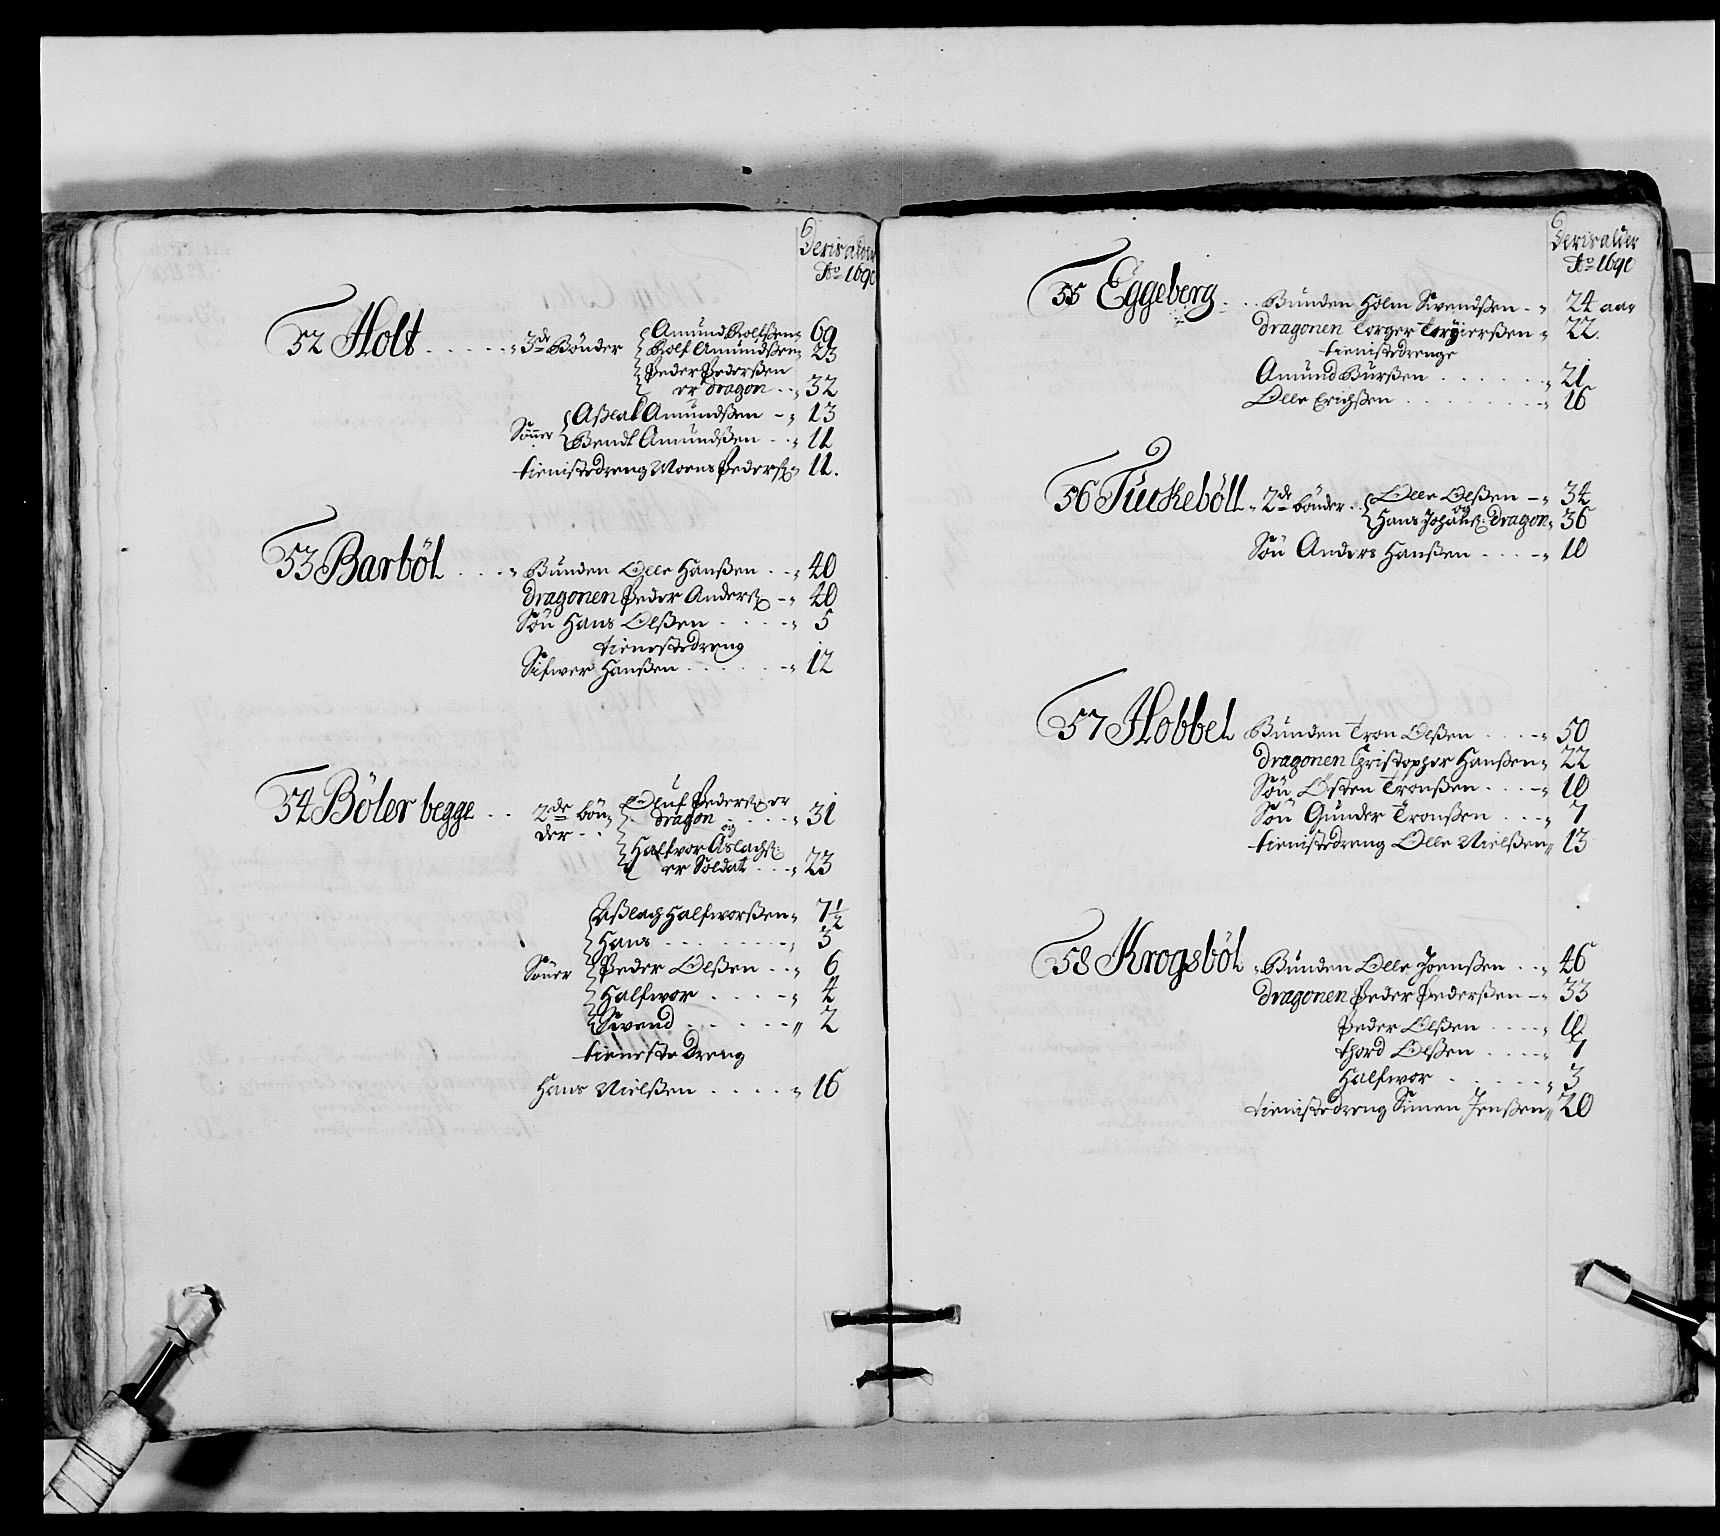 Deris alder
Ao 1690
52 Holt . . . . . . 3de Bönder { Amund Rolfsen 69
{ Rolf Amundßen 23
{ Peder Pederßen
er dragon . . 32
Sönner { Aßlak Amundßen - 13
{ Bendt Amundßen . . 11
tienistedreng Moens Peders: 11.
53 Barböl . . . . Bunden Olle Hanßen . . 40
dragonen Peder Anders: - 40
Sön Hans Olßen . . . . 5
tienestedreng
Sifwer Hanßen . . . . . . 12
54 Böler begge . . 2de bön- { Oluf Peders: er
der . . { dragon . . . . 31
og
{ Halfvor Aslachs:
er Soldat . . . 23
{ Aßlach Halfworßen 7½
{ Hans . . . . . . . 3
Söner { Peder Olßen . . 6
{ Halfwor . . . . 4
{ Swend . . . . . 2
tieneste Dreng
Hans Nielßen . . . . 16
Deris alder
Ao 1690
55 Eggeberg . . . Bunden Holm Swendßen . 24 aar
dragonen Torger Toryierßen 22.
tienistedrenge
Amund Burßen . . . . . . 21
Olle Erichßen . . . . . . . . 16
56 Tuckeböll 2de bönder . . { Olle Olßen - 34
og
{ Hans Johans: Dragon 36
Sön Anders Hanßen . . . . 10
57 Hobbel Bunden Tron Olßen . . . . 50
dragonen Christopher Hanßen 22
Sön Östen Tronßen . . . . 10
Sön Gunder Tronßen . . . . 7
tienistedreng Olle Nielßen 13
58 Krogsböl Bunden Olle Joenßen . . 46
dragonen Peder Pederßen - 33
Peder Olßen . . . . 10
Thord Olßen . . . . 7
Halfwor . . . . . . 3
tienistedreng Simen Jenßen 20